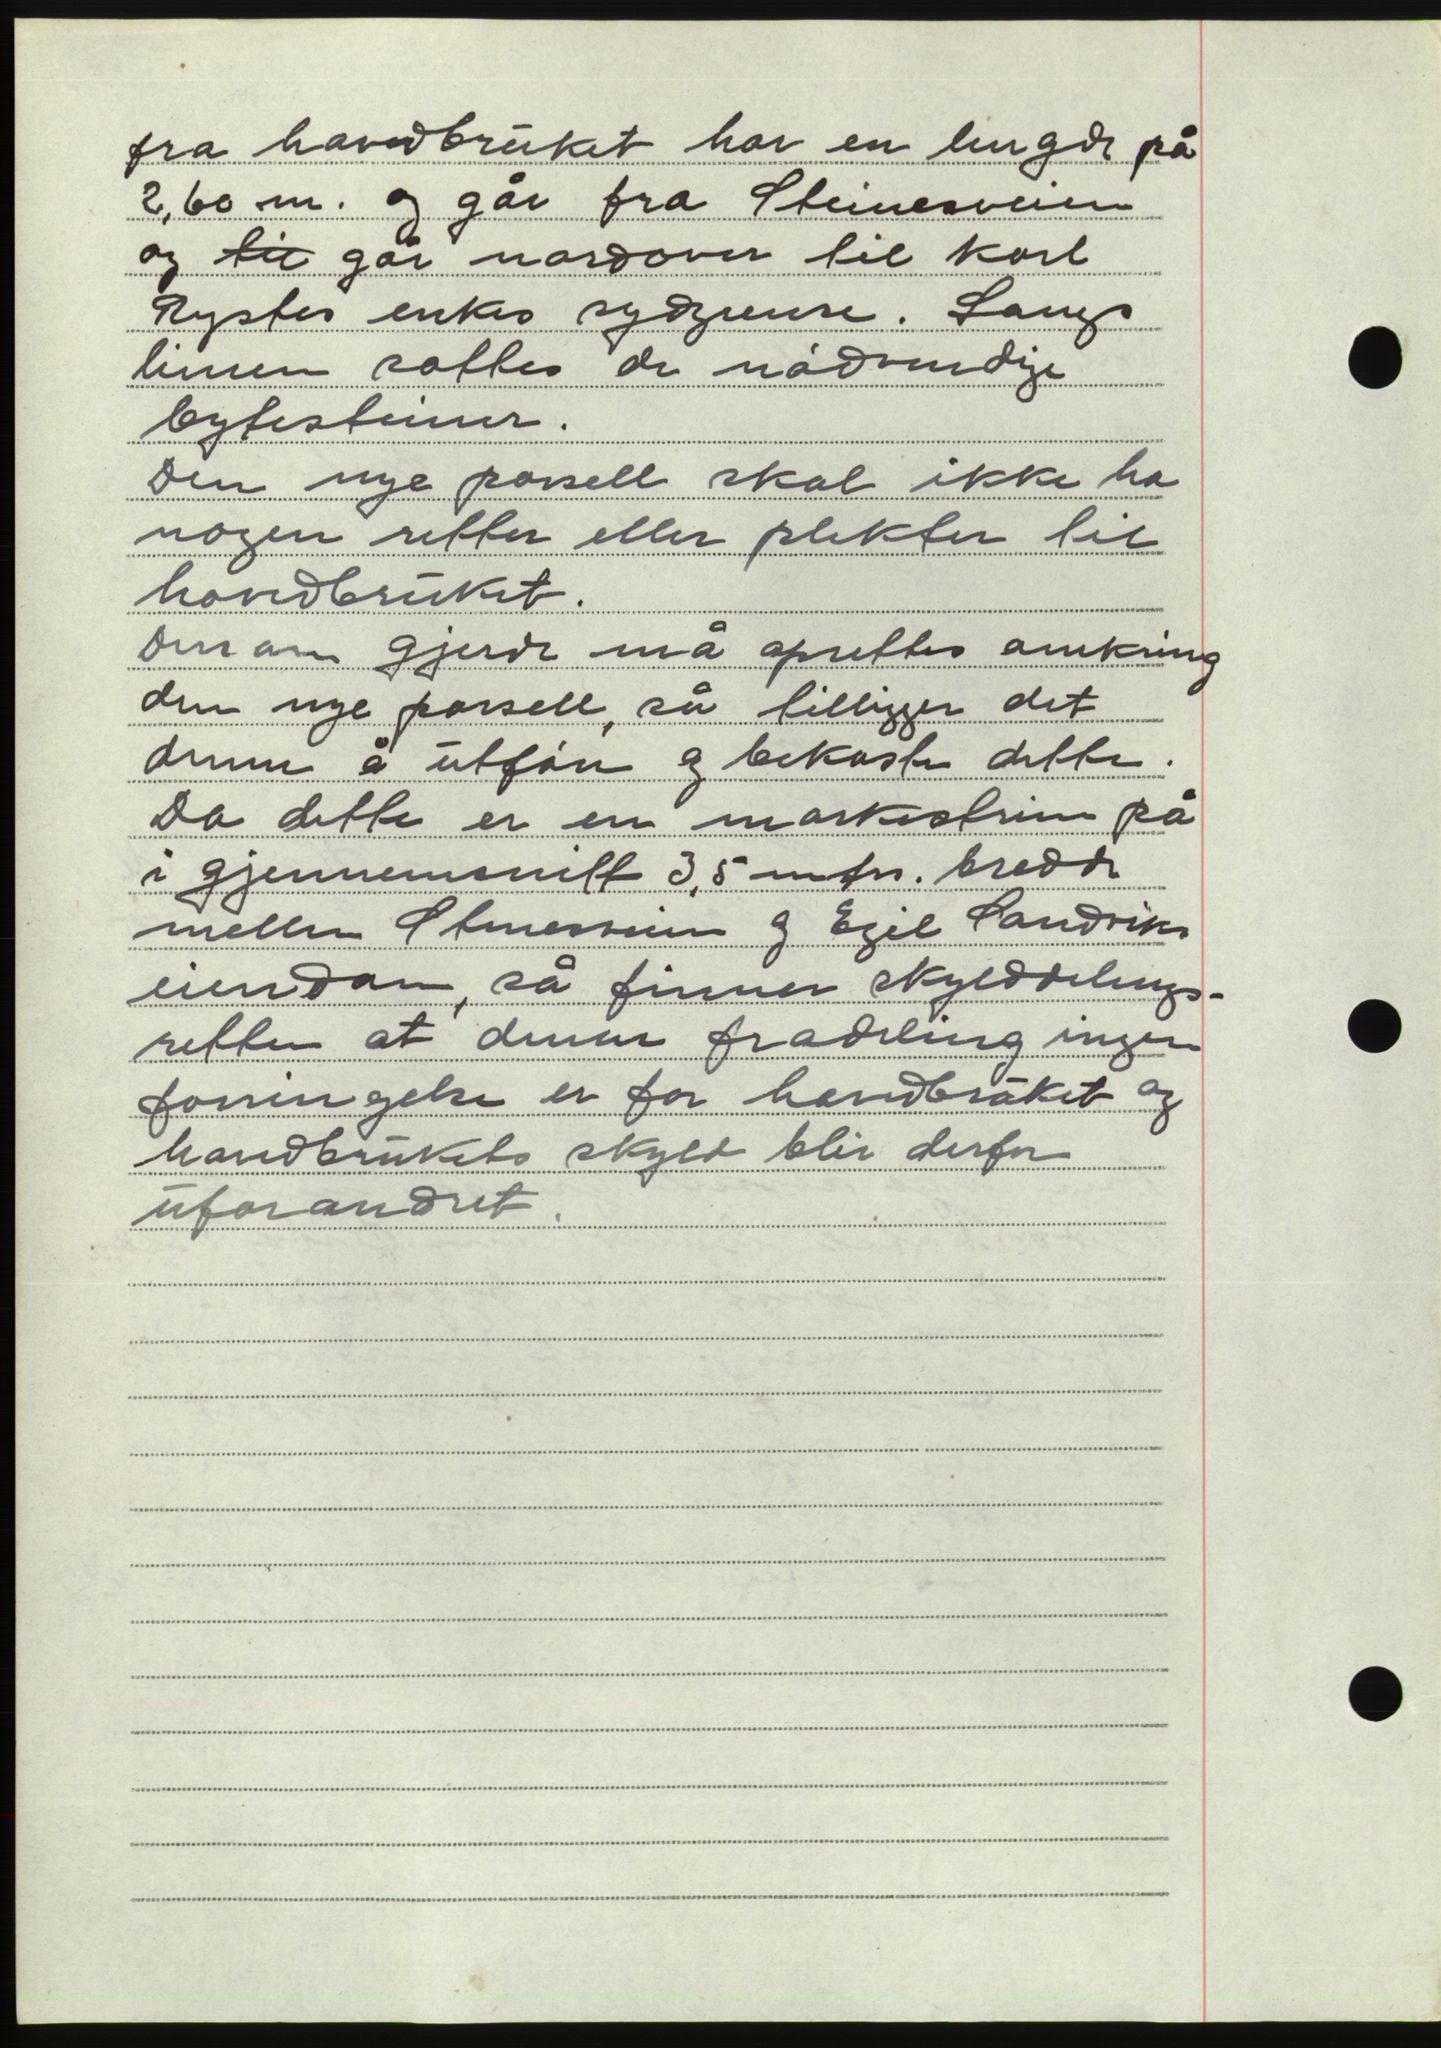 fra hovedbruket har en lengde på
2,60 m. og går fra Steinesveien
og ~~til~~ går nordover til Karl
Rystes enkes sydgrense. Langs
linnen sattes de nødvendige
bytesteiner.
Den nye parsell skal ikke ha
nogen retter eller plikter til
hovedbruket.
Dersom gjerde må oprettes omkring
den nye parsell, så tilligger det
denne å utføre og bekoste dette.
Da dette er en markestrim på
i gjennemsnitt 3,5 mtr. bredde
mellem Steinesveien og Egil Sandviks
eiendom, så finner skylddelings-
retten at denne fradeling ingen
forringelse er for hovedbruket og
hovedbrukets skyld blir derfor
uforandret.